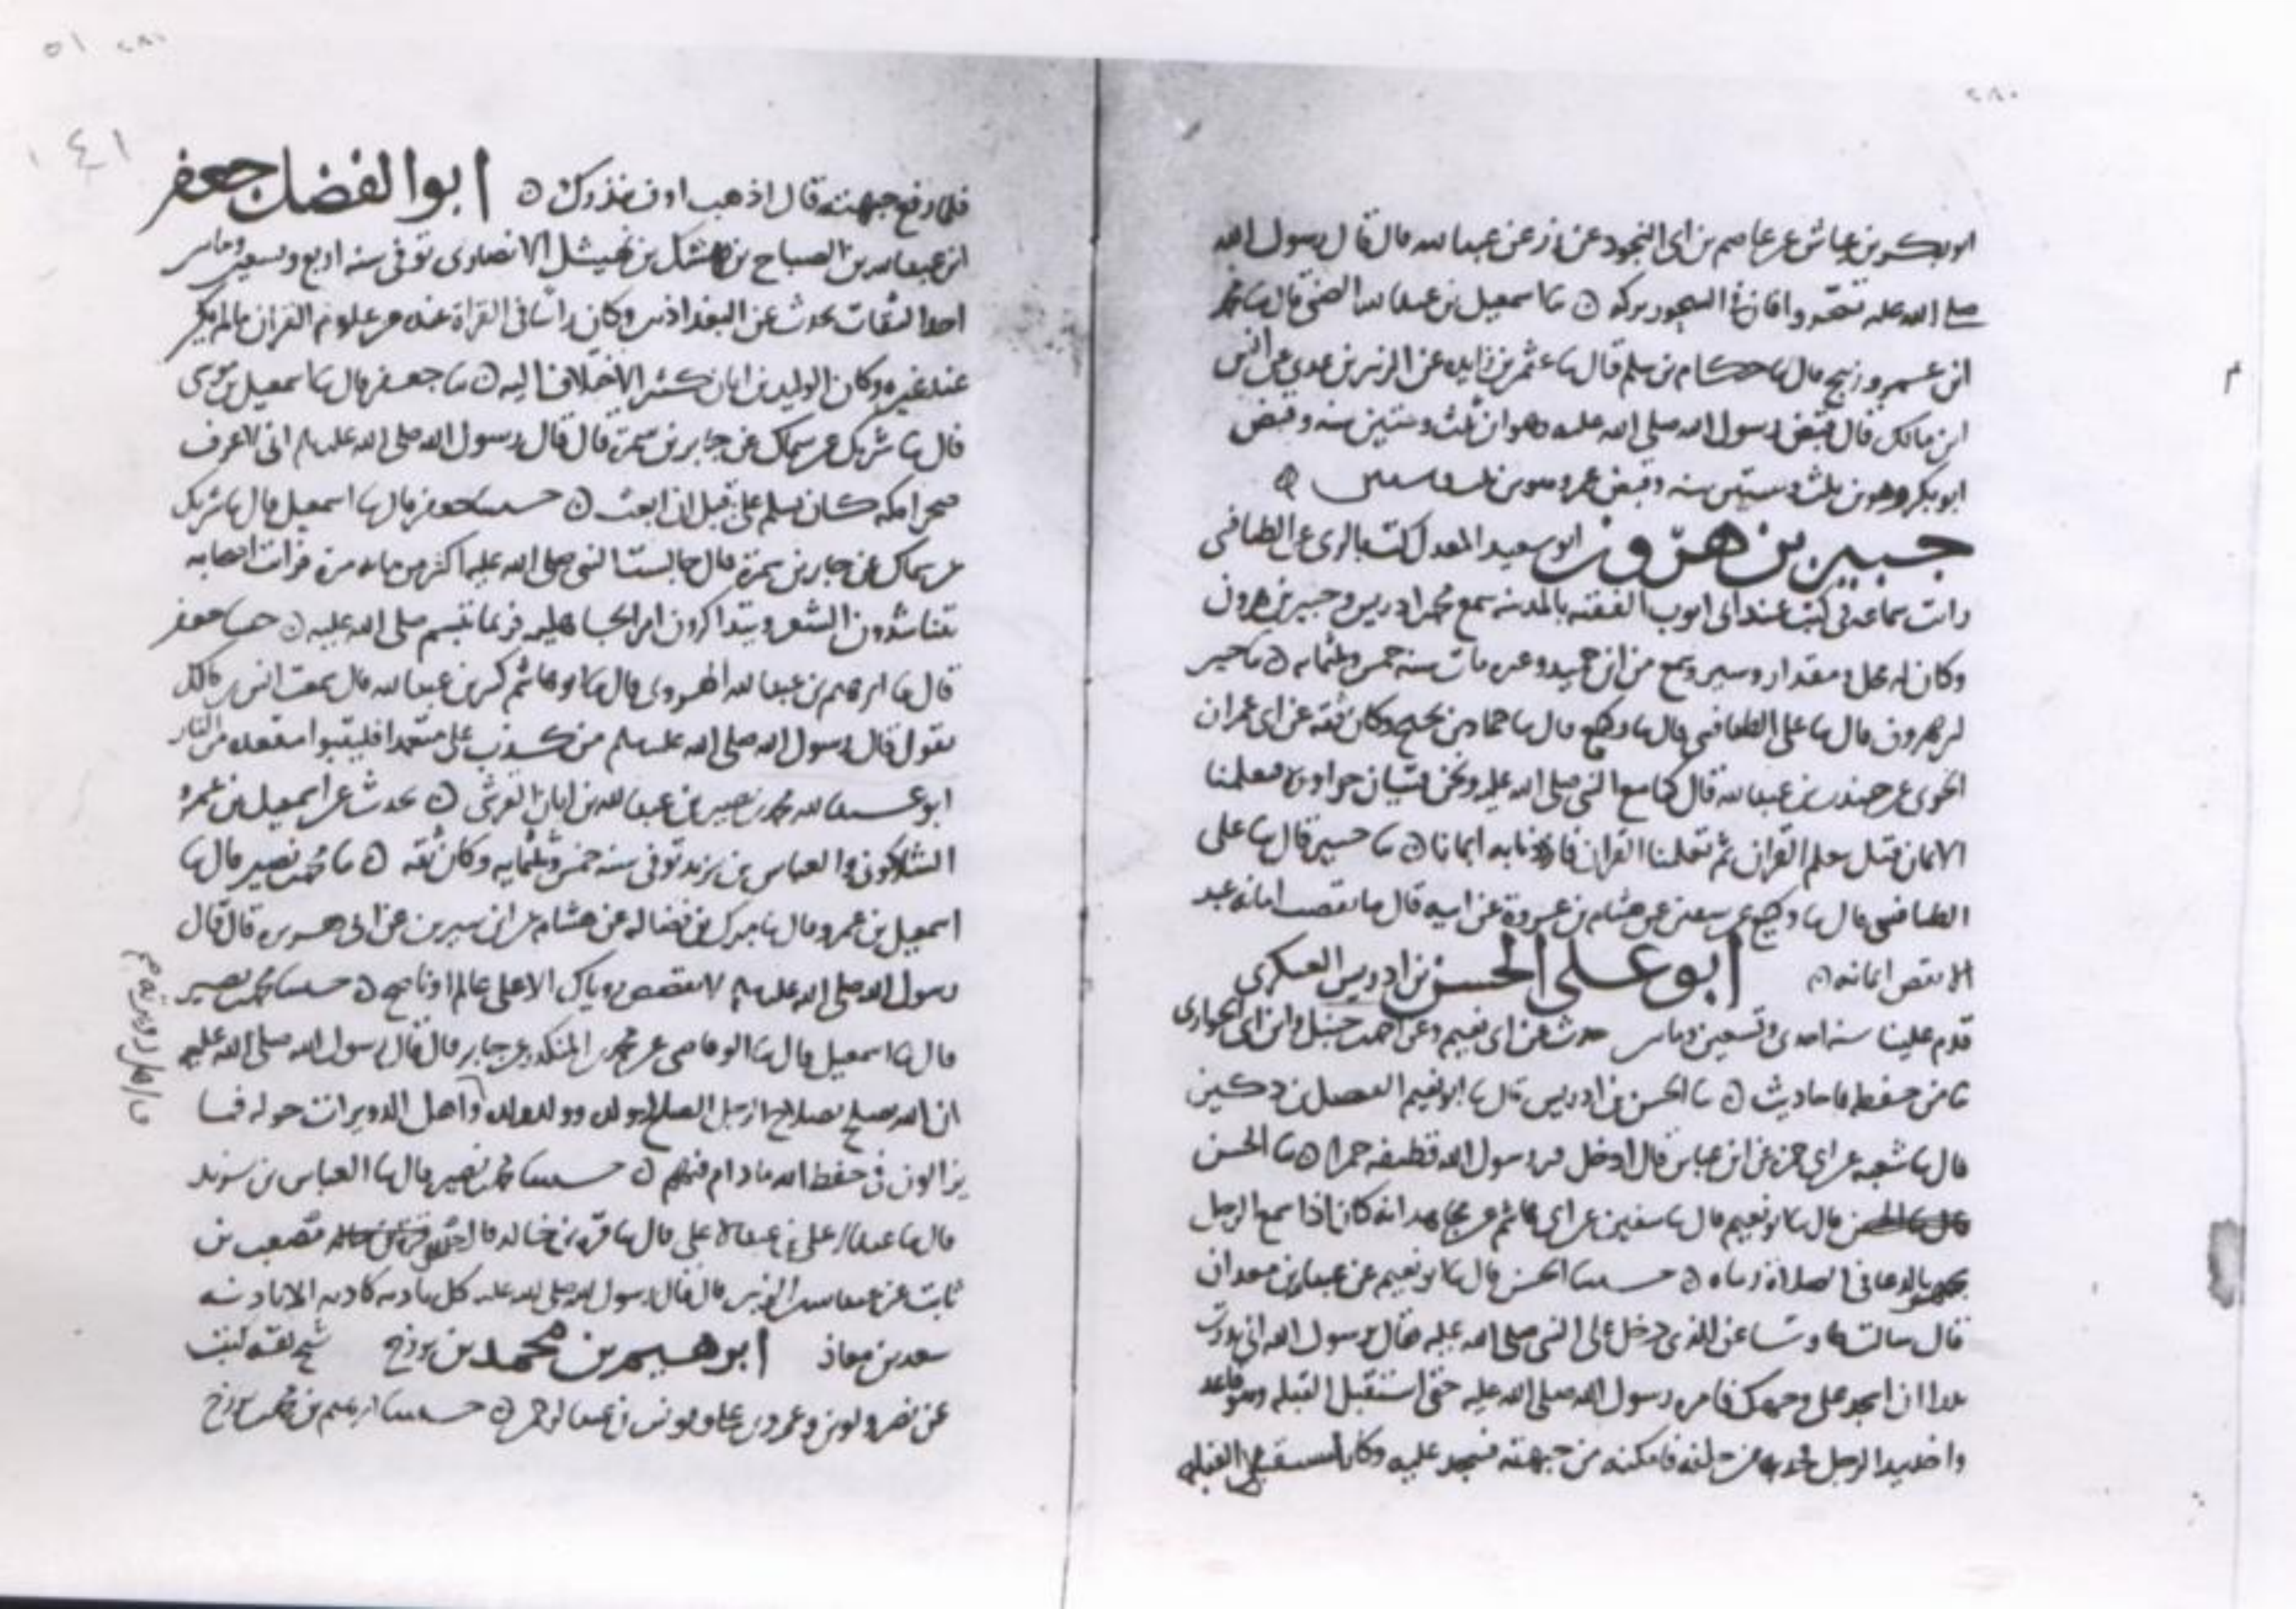 ٢٨٠
ابو بكر بن عياش عن عاصم بن ابى النجود عن زر عن عبد الله قال قال رسول الله
صلى الله عليه تسحروا فان في السحور بركه ۞ ثنا اسمعيل بن عبد الله الضبي قال ثنا محمد
ابن عمرو زنيج قال ثنا حكام بن سلم قال ثنا عثمن بن زايده عن الزبير بن عدي عن انس
ابن مالك قال قبض رسول الله صلى الله عليه وهو ابن ثلث وستين سنه وقبض
ابو بكر وهو بن ثلث وستين سنه وقبض عمر وهو بن ثلث وستين ۞
جبير بن هرون ابو سعيد المعدل كتب بالرى عن الطنافسي
رات سماعه في كتب عند ابى ايوب الفقيه بالمدينه سمع محمد ادريس وجبير بن هرون
وكان له محل ومقدار وسمع من ابن حميد وغيره مات سنه خمس وثلثمايه ۞ ثنا جبير
بن هرون قال ثنا على الطنافسي قال ثنا وكيع قال ثنا حماد بن نجيح وكان ثقه عن ابى عمران
الجوني عن جندب بن عبد الله قال كنا مع النبي صلى الله عليه ونحن فتيان حزاوره فتعلمنا
الايمان قبل تعلم القران ثم تعلمنا القران فازددنا به ايمانا ۞ ثنا جبير قال ثنا على
الطنافسي قال ثنا وكيع عن سفين عن هشام بن عروة عن ابيه قال ما نقصت امانه عبد
الا نقص ايمانه ۞ ابو على الحسن بن ادريس العسكرى
قدم علينا سنه احدى وتسعين ومايتين حدث عن ابى نعيم وعن احمد حنبل وابن ابى الحوارى
ثنا من حفظه باحاديث ۞ ثنا الحسن بن ادريس قال ثنا ابو نعيم الفضل بن دكين
قال ثنا شعبه عن ابى جمره عن ابن عباس قال ادخل قبر رسول الله قطيفه حمرا ۞ ثنا الحسن
قال ثنا ابو نعيم قال ثنا سفين عن ابى هاشم عن مجاهد انه كان اذا سمع الرجل
يجهر بالدعا في الصلاة رماه ۞ حدثنا الحسن قال ثنا ابو نعيم عن عبد الله بن معدان
قال سالت طاوسا عن الذي دخل على النبي صلى الله عليه فقال رسول الله انى نذرت
نذرا ان اسجد على وجهك فامره رسول الله صلى الله عليه حتى استقبل القبله وهو قاعد
واخذ بيد الرجل من خلفه فامكنه من جبهته فسجد عليه وكان مستقبلى القبله
٢٨١ ٥١
١٤١
فلما رفع جبهته قال اذهب اوف بنذرك ۞ ابو الفضل جعفر
ابن عبد الله بن الصباح بن نهشل الانصارى توفى سنه اربع وتسعين ومايتين
احد الثقات يحدث عن البغداذيين وكان راسا في القراة عنده من علوم القران ما لم يكن
عند غيره وكان الوليد بن ابان كثير الاختلاف اليه ۞ ثنا جعفر قال ثنا اسمعيل بن موسى
قال ثنا شريك عن سماك عن جابر بن سمرة قال قال رسول الله صلى الله عليه انى لاعرف
حجرا بمكه كان يسلم على قبل ان ابعث ۞ حدثنا جعفر قال ثنا اسمعيل قال ثنا شريك
عن سماك عن جابر بن سمرة قال جالست النبي صلى الله عليه اكثر من مايه مرة فرات اصحابه
يتناشدون الشعر ويتذاكرون امر الجاهليه فربما تبسم صلى الله عليه ۞ حدثنا جعفر
قال ثنا ابرهيم بن عبد الله الهروى قال ثنا ابو هاشم كثير بن عبد الله قال سمعت انس بن مالك
يقول قال رسول الله صلى الله عليه من كذب على متعمدا فليتبوا مقعده من النار
ابو عبد الله محمد بن نصير بن عبد الله بن ابان القرشى ۞ يحدث عن اسمعيل بن عمرو
الشاذكونى والعباس بن يزيد توفى سنه خمس وثلثمايه وكان ثقه ۞ ثنا محمد نصير قال ثنا
اسمعيل بن عمرو قال ثنا مبرك بن فضاله عن هشام عن ابن سيرين عن ابى هريره قال قال
رسول الله صلى الله عليه لا تقصص روياك الا على عالم او ناصح ۞ حدثنا محمد نصير
قال ثنا اسمعيل قال ثنا عن محمد بن المنكدر عن جابر قال قال رسول الله صلى الله عليه
ان الله يصلح بصلاح الرجل الصالح ولده وولد ولده واهل الدويرات حوله فما
يزالون في حفظ الله ما دام فيهم ۞ حدثنا محمد نصير قال ثنا العباس بن يزيد
قال ثنا عبد الاعلى بن عبد الاعلى قال ثنا قره بن خالد قال مصعب بن
ثابت عن عبد الله بن الزبير قال قال رسول الله صلى الله عليه كل نادبه كاذبه الا نادبه
سعد بن معاذ ابرهيم بن محمد بن بزرج شيخ ثقه كتبت
عن نصر وعمرو بن على ويونس بن حدثنا ابرهيم بن محمد بزرج